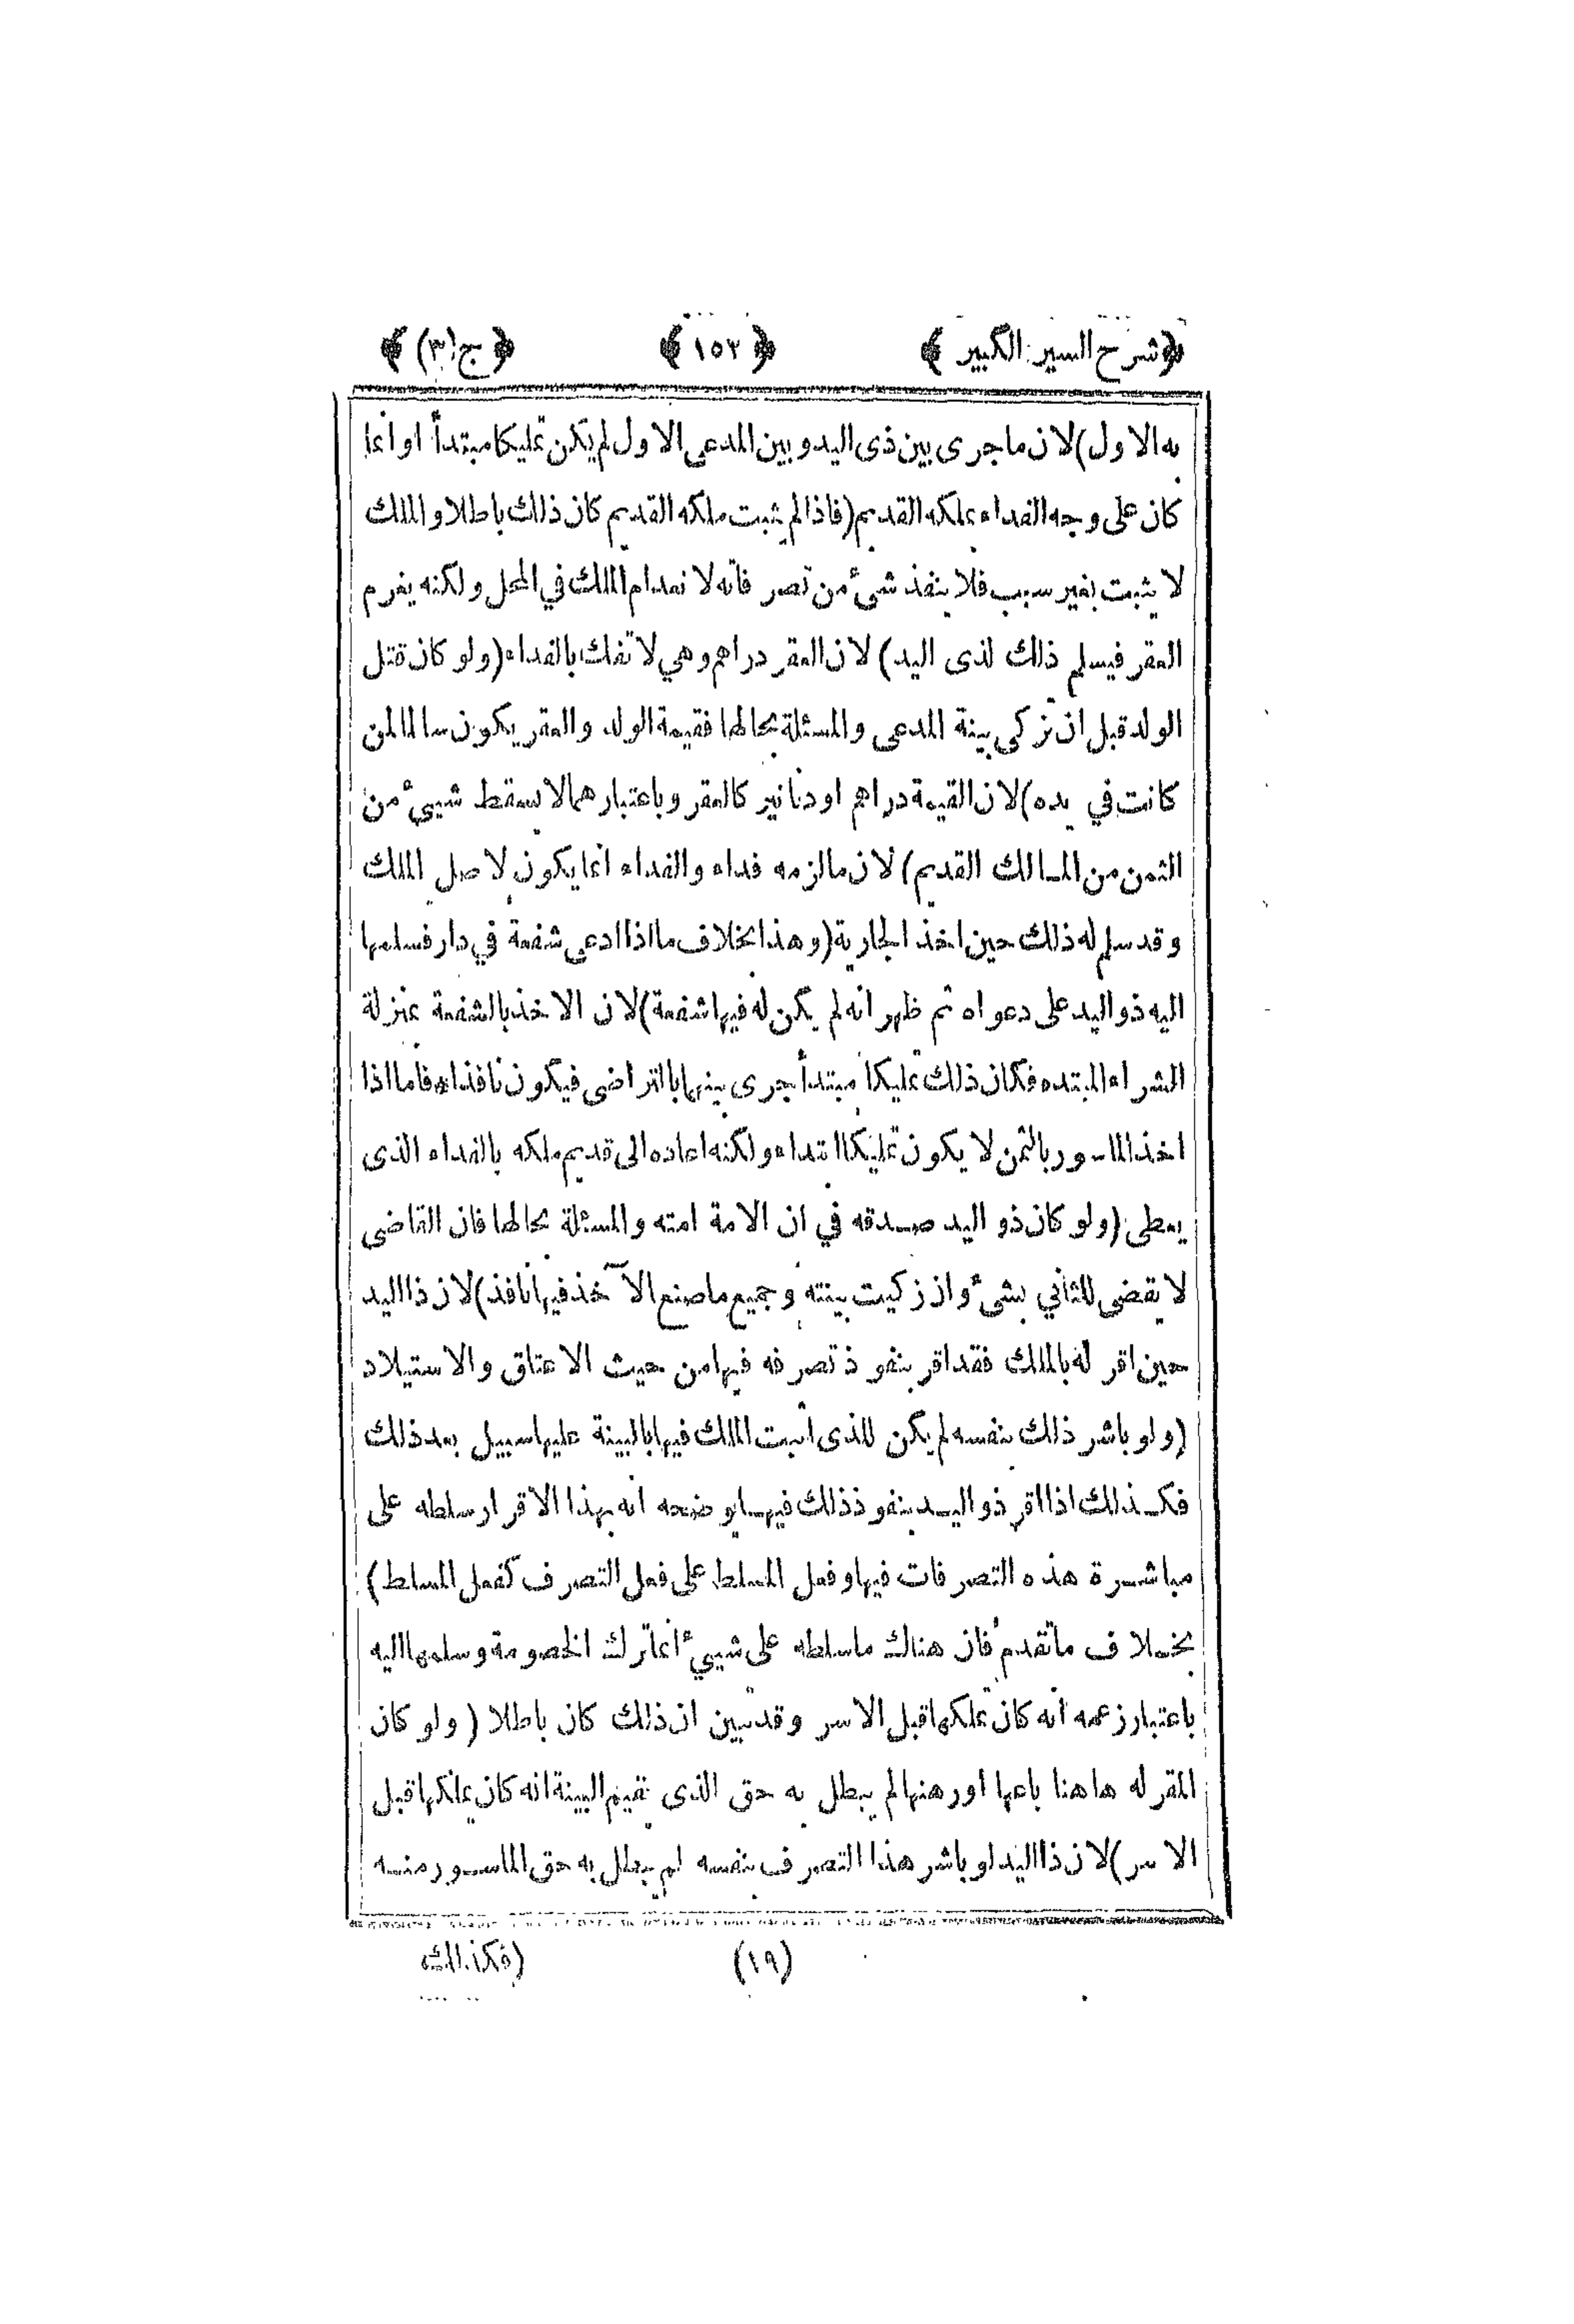 ﴿شرح السير الكبير﴾ ﴿١٥٣﴾ ﴿ج(٣)﴾
به الاول) لان ما جرى بين ذى اليد وبين المدعى الاول لم يكن تمليكا مبتدأ او انما
كان على وجه الفداء بملكه القديم (فاذا لم يثبت ملكه القديم كان ذلك باطلا والملك
لا يثبت بغير سبب فلا ينفذ شئ من تصرفاته لانعدام الملك في المحل ولكنه يغرم
العقر فيسلم ذلك لذى اليد) لان العقر دراهم وهي لا تفك بالفداء (ولو كان قتل
الولد قبل ان تزكى بينة المدعى والمسئلة بحالها فقيمة الولد والعقر يكون سالما لمن
كانت في يده) لان القيمة دراهم او دنانير كالعقر وباعتبارهما لا يسقط شيئ من
الثمن من المالك القديم) لان ما لزمه فداء والفداء انما يكون لاصل الملك
وقد سلم له ذلك حين اخذ الجارية (وهذا بخلاف ما اذا ادعى شفعة في دار فسلمها
اليه ذو اليد على دعواه ثم ظهر انه لم يكن له فيها شفعة) لان الاخذ بالشفعة بمنزلة
الشراء المبتدء فكان ذلك تمليكا مبتدأ جرى بينهما بالتراضى فيكون نافذا* فاما اذا
اخذ الماسور بالثمن لا يكون تمليكا ابتداء ولكنه اعاده الى قديم ملكه بالفداء الذى
يعطى (ولو كان ذو اليد صدقه في ان الامة امته والمسئلة بحالها فان القاضى
لا يقضى للثاني بشئ وان زكيت بينته وجميع ما صنع الآخذ فيها نافذ) لان ذا اليد
حين اقر له بالملك فقد اقر بنفوذ تصرفه فيها من حيث الاعتاق والاستيلاد
(ولو باشر ذلك بنفسه لم يكن للذى اثبت الملك فيها بالبينة عليها سبيل بعد ذلك
فكذلك اذا اقر ذو اليد بنفوذ ذلك فيها يوضحه انه بهذا الاقرار سلطه على
مباشرة هذه التصرفات فيها وفعل المسلط على فعل التصرف كفعل المسلط)
بخلاف ما تقدم فان هناك ما سلطه على شيئ انما ترك الخصومة وسلمها اليه
باعتبار زعمه انه كان تملكها قبل الاسر وقد تبين ان ذلك كان باطلا (ولو كان
المقر له هاهنا باعها او رهنها لم يبطل به حق الذى يقيم البينة انه كان يملكها قبل
الاسر) لان ذا اليد لو باشر هذا التصرف بنفسه لم يبطل به حق الماسور منه
(١٩) (فكذلك